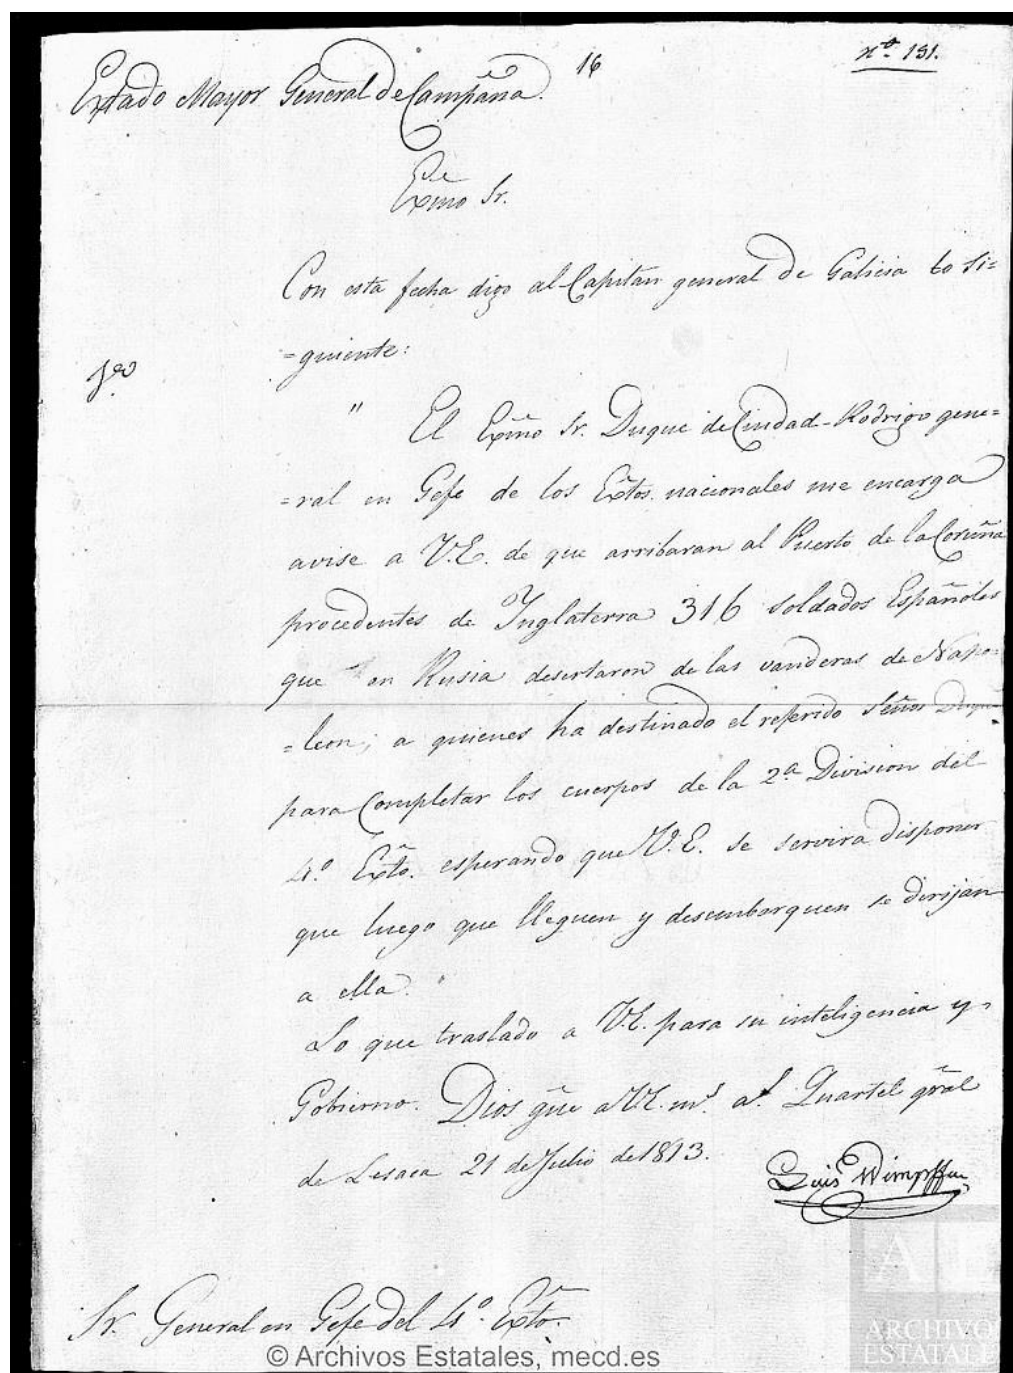 Estado Mayor General de Campaña.
16
nº. 191.
Exmo Sr.
Con esta fecha digo al Capitan general de Galicia lo si=
=guiente:
" El Exmo Sr. Duque de Ciudad-Rodrigo gene=
=ral en Gefe de los Extos. nacionales me encarga
avise a V.E. de que arribaran al Puerto de la Coruña
procedentes de Inglaterra 316 soldados Españoles
que en Rusia desertaron de las vanderas de Napo=
=leon; a quienes ha destinado el referido Señor Duque
para completar los cuerpos de la 2.ª Division del
4.º Exto. esperando que V.E. se servira disponer
que luego que lleguen y desembarquen se dirijan
a ella."
Lo que traslado a V.E. para su inteligencia y
Gobierno. Dios gue a V.E. ms. as. Quartel gral
de Lesaca 21 de Julio de 1813.
Luis Wimpffen
Sr. General en Gefe del 4.º Exto.
© Archivos Estatales, mecd.es
AE
ARCHIVO
ESTATAL